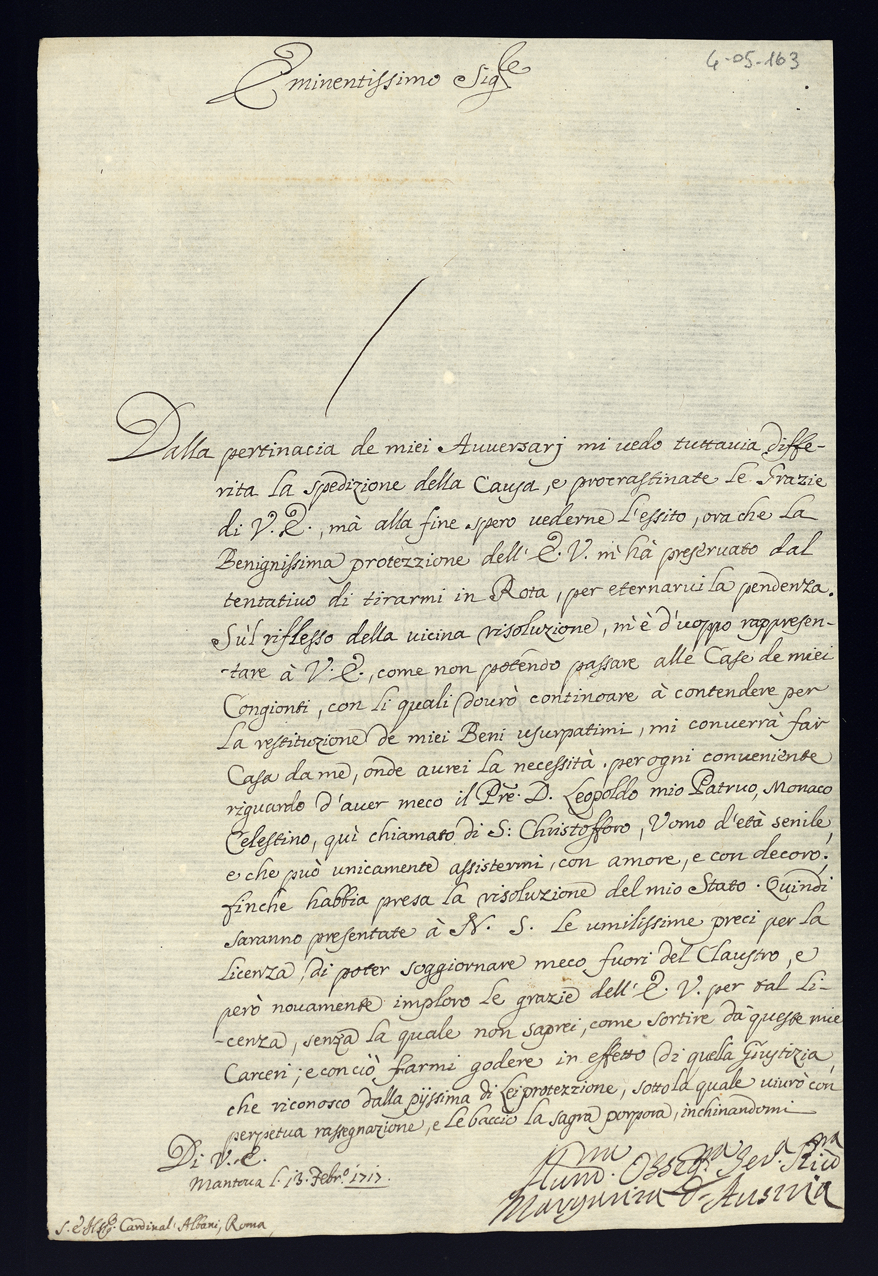 4-05-163
Eminentissimo Sig.re
Dalla pertinacia de miei Auuersarj mi uedo tuttauia diffe-
rita la spedizione della Causa, e procrastinate le Grazie
di V. E., mà alla fine spero uederne l'essito, ora che la
Benignissima protezzione dell' E. V. m'hà preseruato dal
tentatiuo di tirarmi in Rota, per eternarui la pendenza.
Sù'l riflesso della uicina risoluzione, m'è d'uoppo rappresen-
tare à V. E., come non potendo passare alle Case de miei
Congionti, con li quali dourò continoare à contendere per
la restituzione de miei Beni usurpatimi, mi conuerrà far
Casa da me, onde aurei la necessità per ogni conueniente
riguardo d'auer meco il Pre. D. Leopoldo mio Patruo, Monaco
Celestino, quì chiamato di S: Christofforo, Vomo d'età senile,
e che può unicamente assistermi, con amore, e con decoro,
finche habbia presa la risoluzione del mio Stato. Quindi
saranno presentate à N. S. le umilissime preci per la
licenza, di poter soggiornare meco fuori del Claustro, e
però nouamente imploro le grazie dell' E. V. per tal li-
cenza, senza la quale non saprei, come sortire dà queste mie
Carceri; e con ciò farmi godere in effetto di quella Giustizia,
che riconosco dalla pijssima di Lei protezzione, sotto la quale uiurò con
perpetua rassegnazione, e le baccio la sagra porpora, inchinandomi
Di V. E.
Mantoua l. 13. Febr.o 1717.
Hum.ma Obseq.ma Ser.a
Margherita d'Austria
Cardinal: Albani, Roma